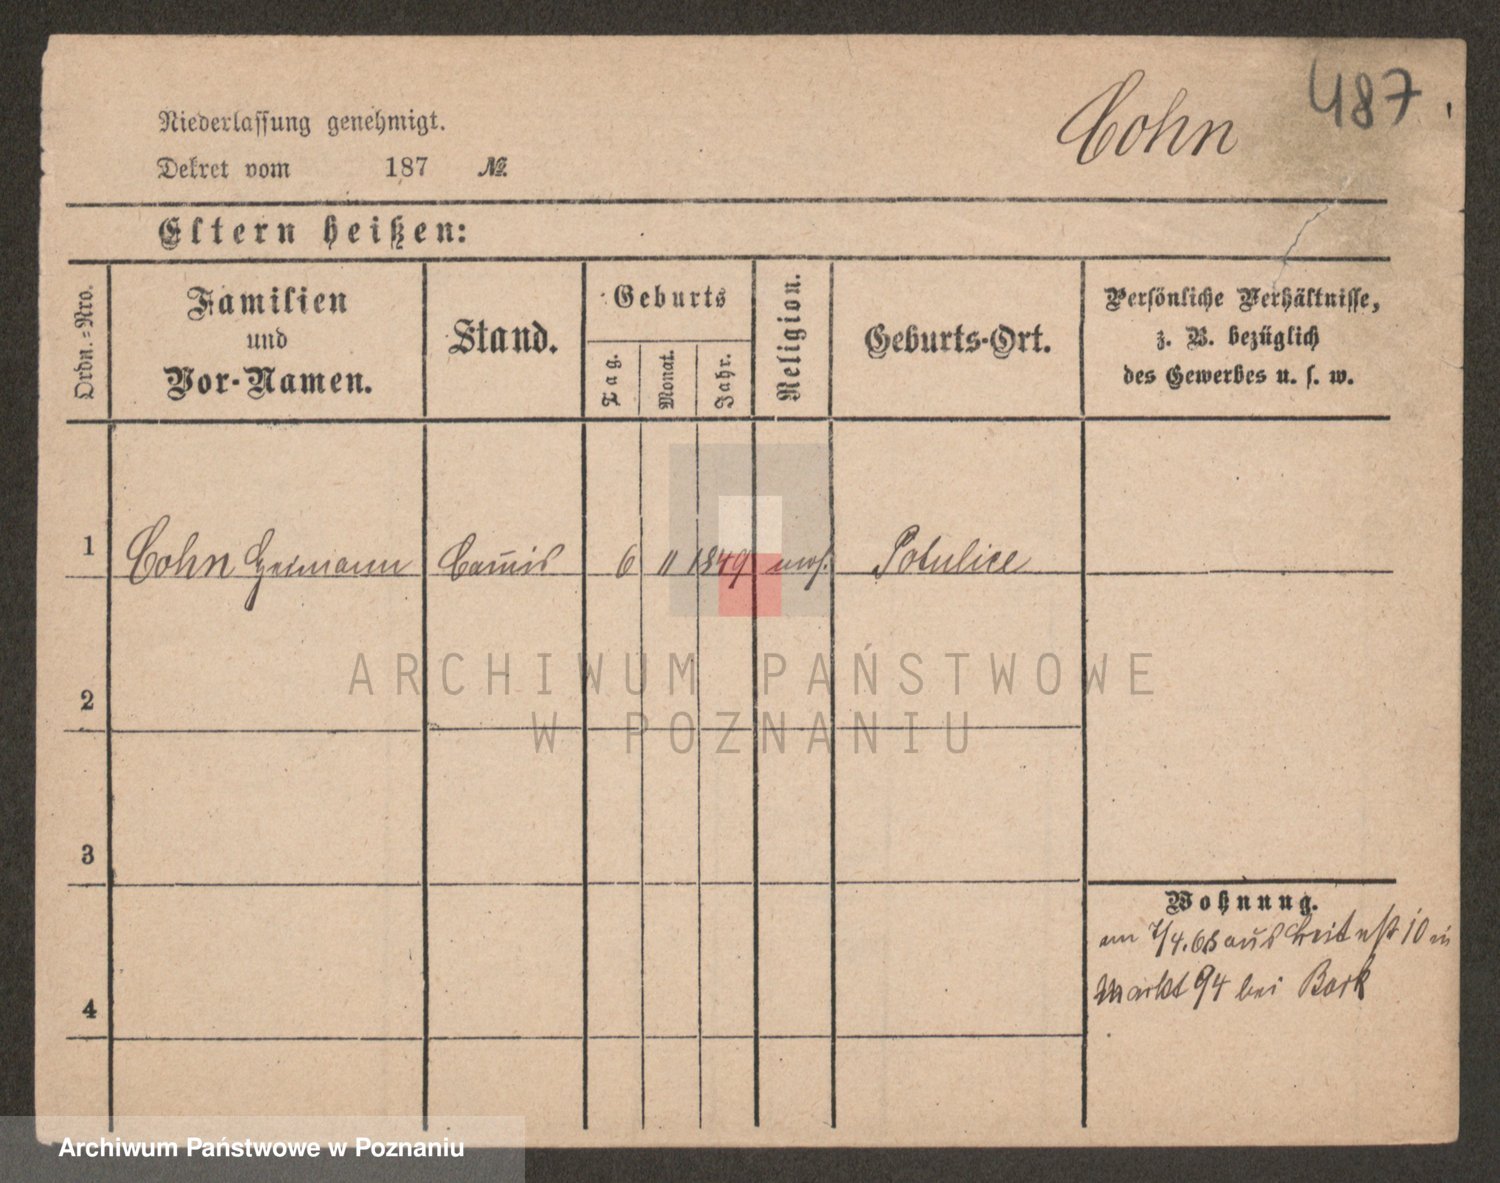 487.
Cohn
Niederlassung genehmigt.
Dekret vom 187 №
Eltern heißen:
Ordn.-Nro.
Familien
und
Vor-Namen.
Stand.
Geburts
Tag.
Monat.
Jahr.
Religion.
Geburts-Ort.
Persönliche Verhältnisse,
z. B. bezüglich
des Gewerbes u. s. w.
1 Cohn Heimann Comis 6 11 1849 mos. Potulice
2
3
4
Wohnung.
am 7/4.68 aus 10 in
Markt 94 bei Bork
ARCHIWUM PAŃSTWOWE
W POZNANIU
Archiwum Państwowe w Poznaniu